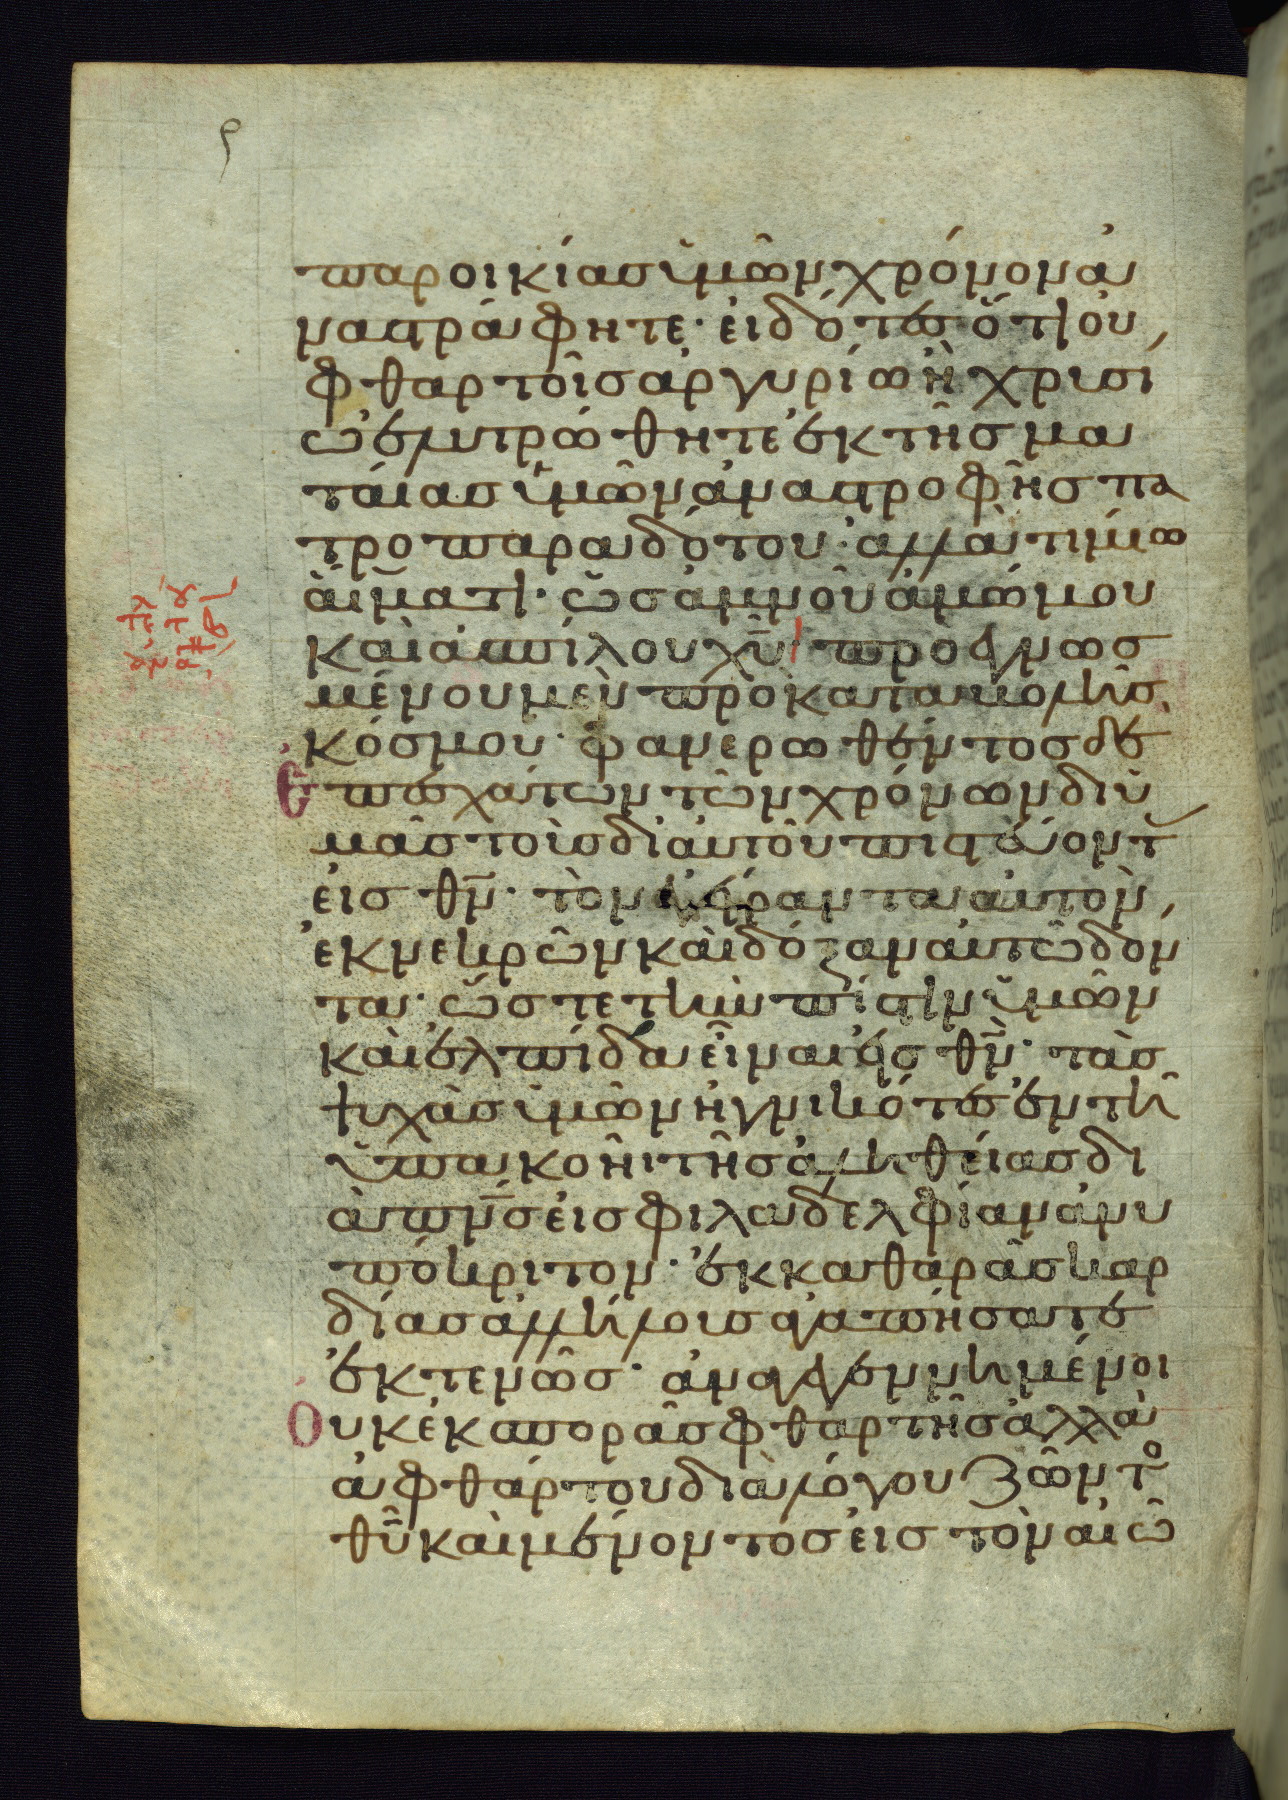 παροικίας ὑμῶν χρόνον ἀ
ναστράφητε· εἰδότες ὅτι οὐ
φθαρτοῖς ἀργυρίω ἢ χρυσί
ω ἐλυτρώθητε ἐκ τῆς μα
ταίας ὑμῶν ἀναστροφῆς πα
τροπαραδότου· ἀλλὰ τιμίω
αἵματι· ὡς ἀμνοῦ ἀμώμου
καὶ ἀσπίλου χυ̅ προεγνωσ
μένου μὲν πρὸ καταβολῆς
κόσμου· φανερωθέντος δὲ
ἐπ ἐσχάτων τῶν χρόνων δι ὑ
μᾶς τοὺς δι αὐτοῦ πιστεύοντ
εἰς θν̅· τὸν ἐγείραντα αὐτὸν
ἐκ νεκρῶν καὶ δόξαν αὐτῶ δόν
τα· ὥστε τὴν πίστιν ὑμῶν
καὶ ἐλπίδα εἶναι εἰς θν̅· τὰς
ψυχὰς ὑμῶν ἡγνικότες ἐν τῆ
ὑπακοῆι τῆς ἀληθείας δι
ὰ πνς̅ εἰς φιλαδελφίαν ἀνυ
πόκριτον· ἐκ καθαρᾶς καρ
δίας ἀλλήλοις ἀγαπήσατε
ἐκτενῶς· ἀναγεγεννημένοι
Οὐκ ἐκ σπορᾶς φθαρτῆς ἀλλὰ
ἀφθάρτου διὰ λόγου ζῶντο
θυ̅ καὶ μένοντος εἰς τὸν αἰῶ